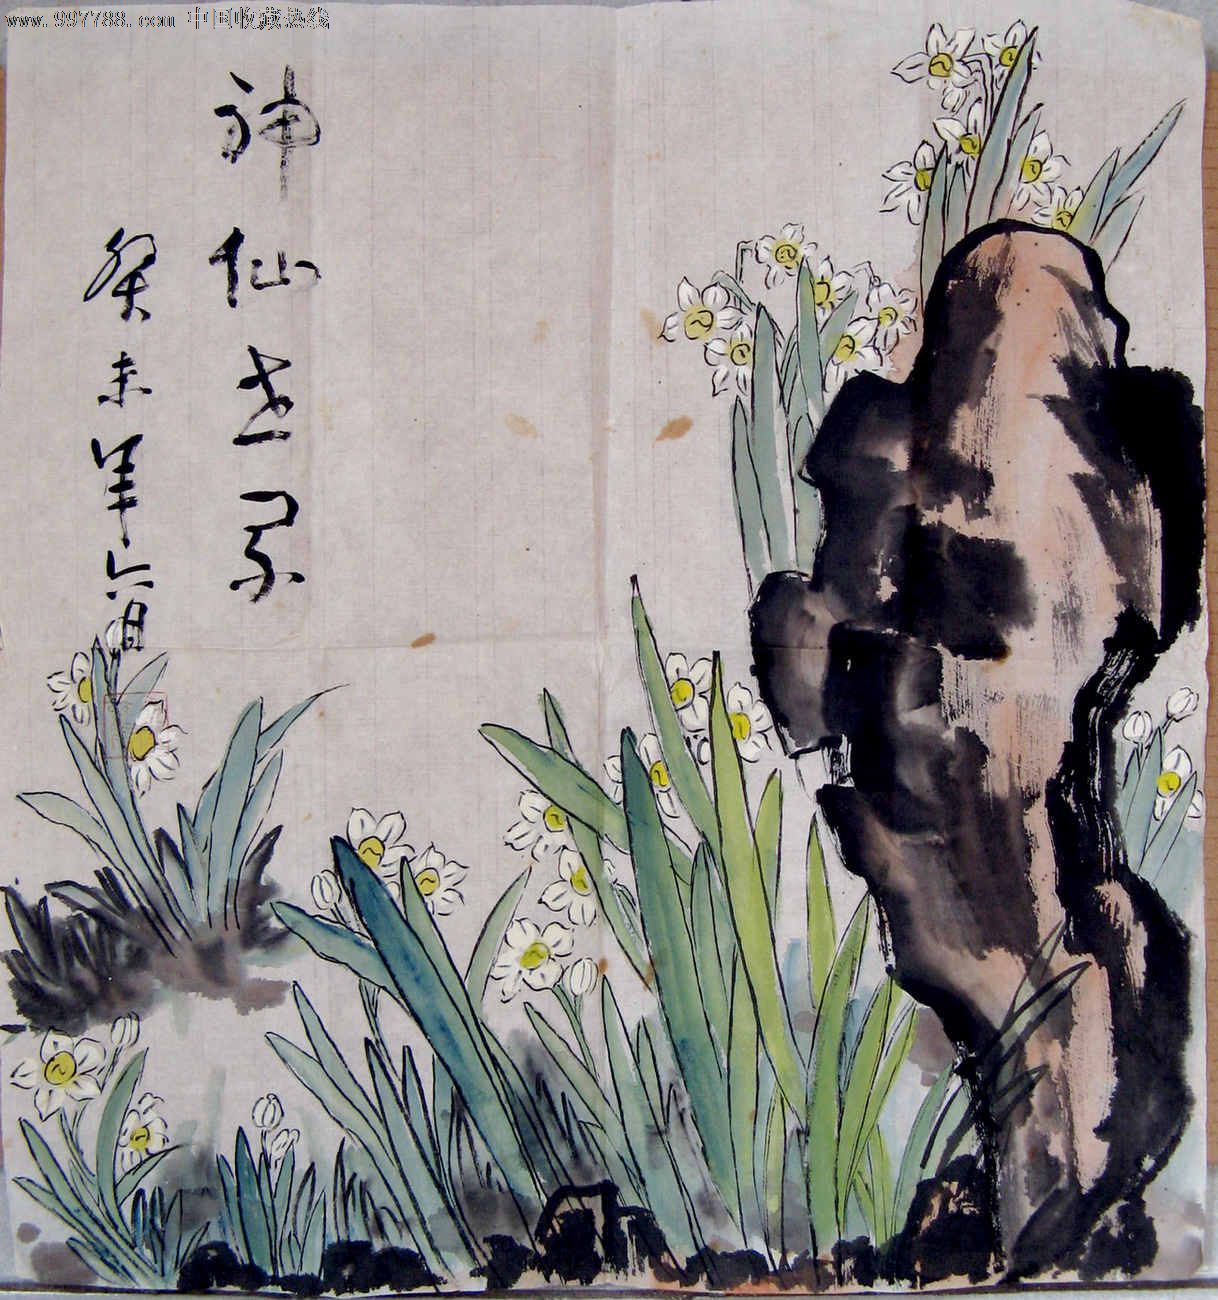 www.997788.com 中国收藏热线
神仙世界
癸未年六月